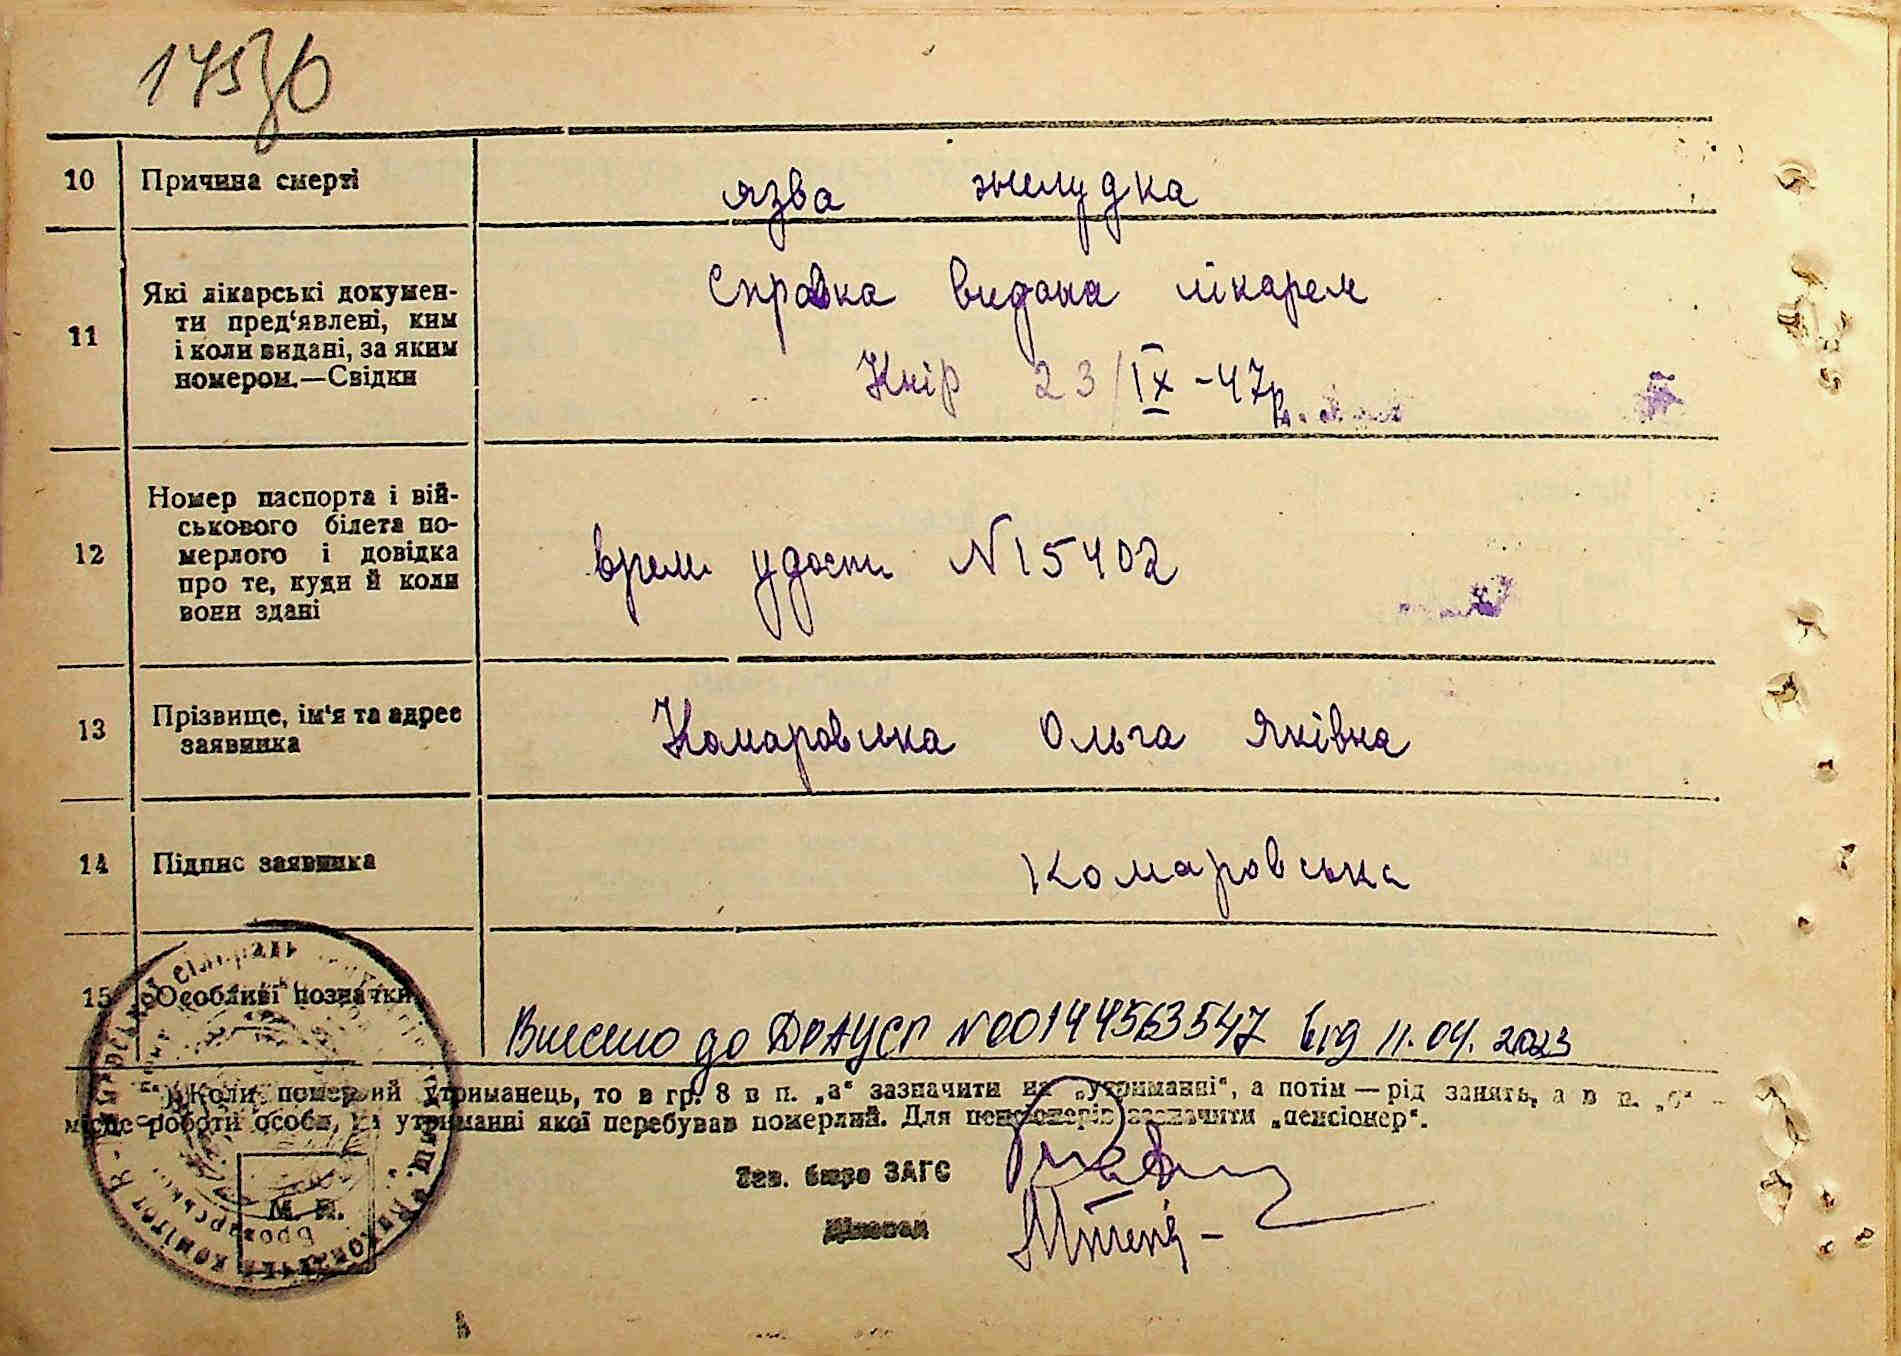 10 Причина смерті язва желудка
11 Які лікарські докумен-
ти пред'явлені, ким
і коли видані, за яким
номером.—Свідки
Справка видана лікарем
Кнір 23/IX-47р.
12 Номер паспорта і вій-
ськового білета по-
мерлого і довідка
про те, куди й коли
вони здані
врем удост N15402
13 Прізвище, ім'я та адрес
заявника
Комаровська Ольга Яківна
14 Підпис заявника Комаровська
15 Особливі позначки
Внесено до ДРАЦСГ N00144563547 від 11.04.2023
Коли померлий утриманець, то в гр. 8 в п. „а“ зазначити на „утриманні“, а потім — рід занять, а в п. „б“ –
місце роботи особи, на утриманні якої перебував померлий. Для пенсіонерів зазначити „пенсіонер“.
Зав. бюро ЗАГС
Діловод
М. П.